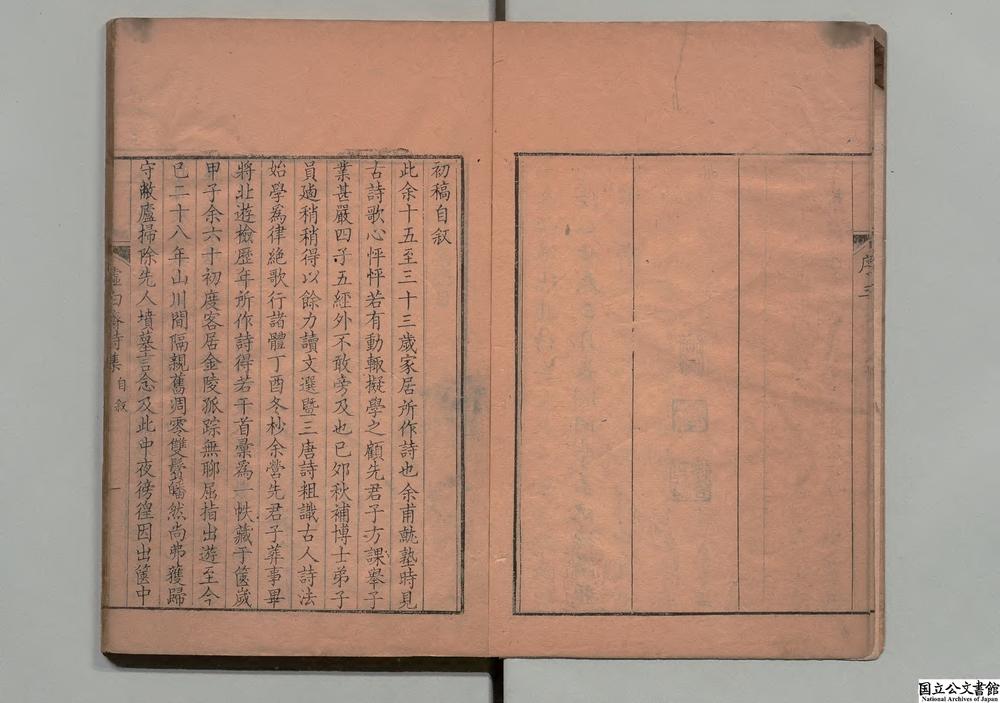 初稿自敘
此余十五至三十三歲家居所作詩也余甫就塾時見
古詩歌心怦怦若有動輒擬學之顧先君子方課舉子
業甚嚴四子五經外不敢旁及也已夘秋補博士弟子
員廼稍稍得以餘力讀文選暨三唐詩粗識古人詩法
始學爲律絶歌行諸體丁酉冬杪余營先君子葬事畢
將北遊檢歷年所作詩得若干首彙爲一帙藏于篋歲
甲子余六十初度客居金陵孤踪無聊屈指出遊至今
已二十八年山川間隔親舊凋零雙鬂皤然尚弗獲歸
守敝廬掃除先人墳墓言念及此中夜徬徨因出篋中
虛白齋詩集
自敘
一
国立公文書館
National Archives of Japan